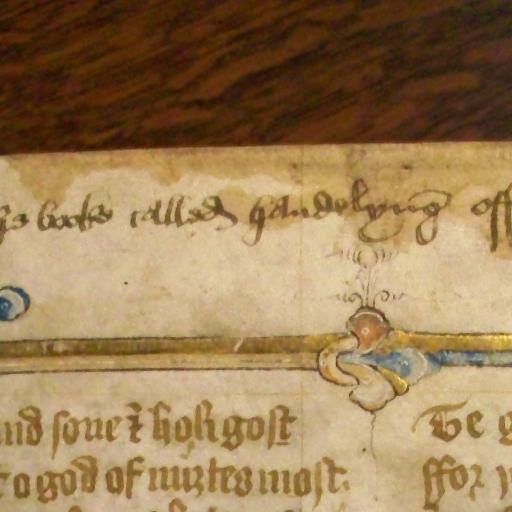 booke called handelyng off
and sone & holi gost
to god of myztes most.
Þe
ffor